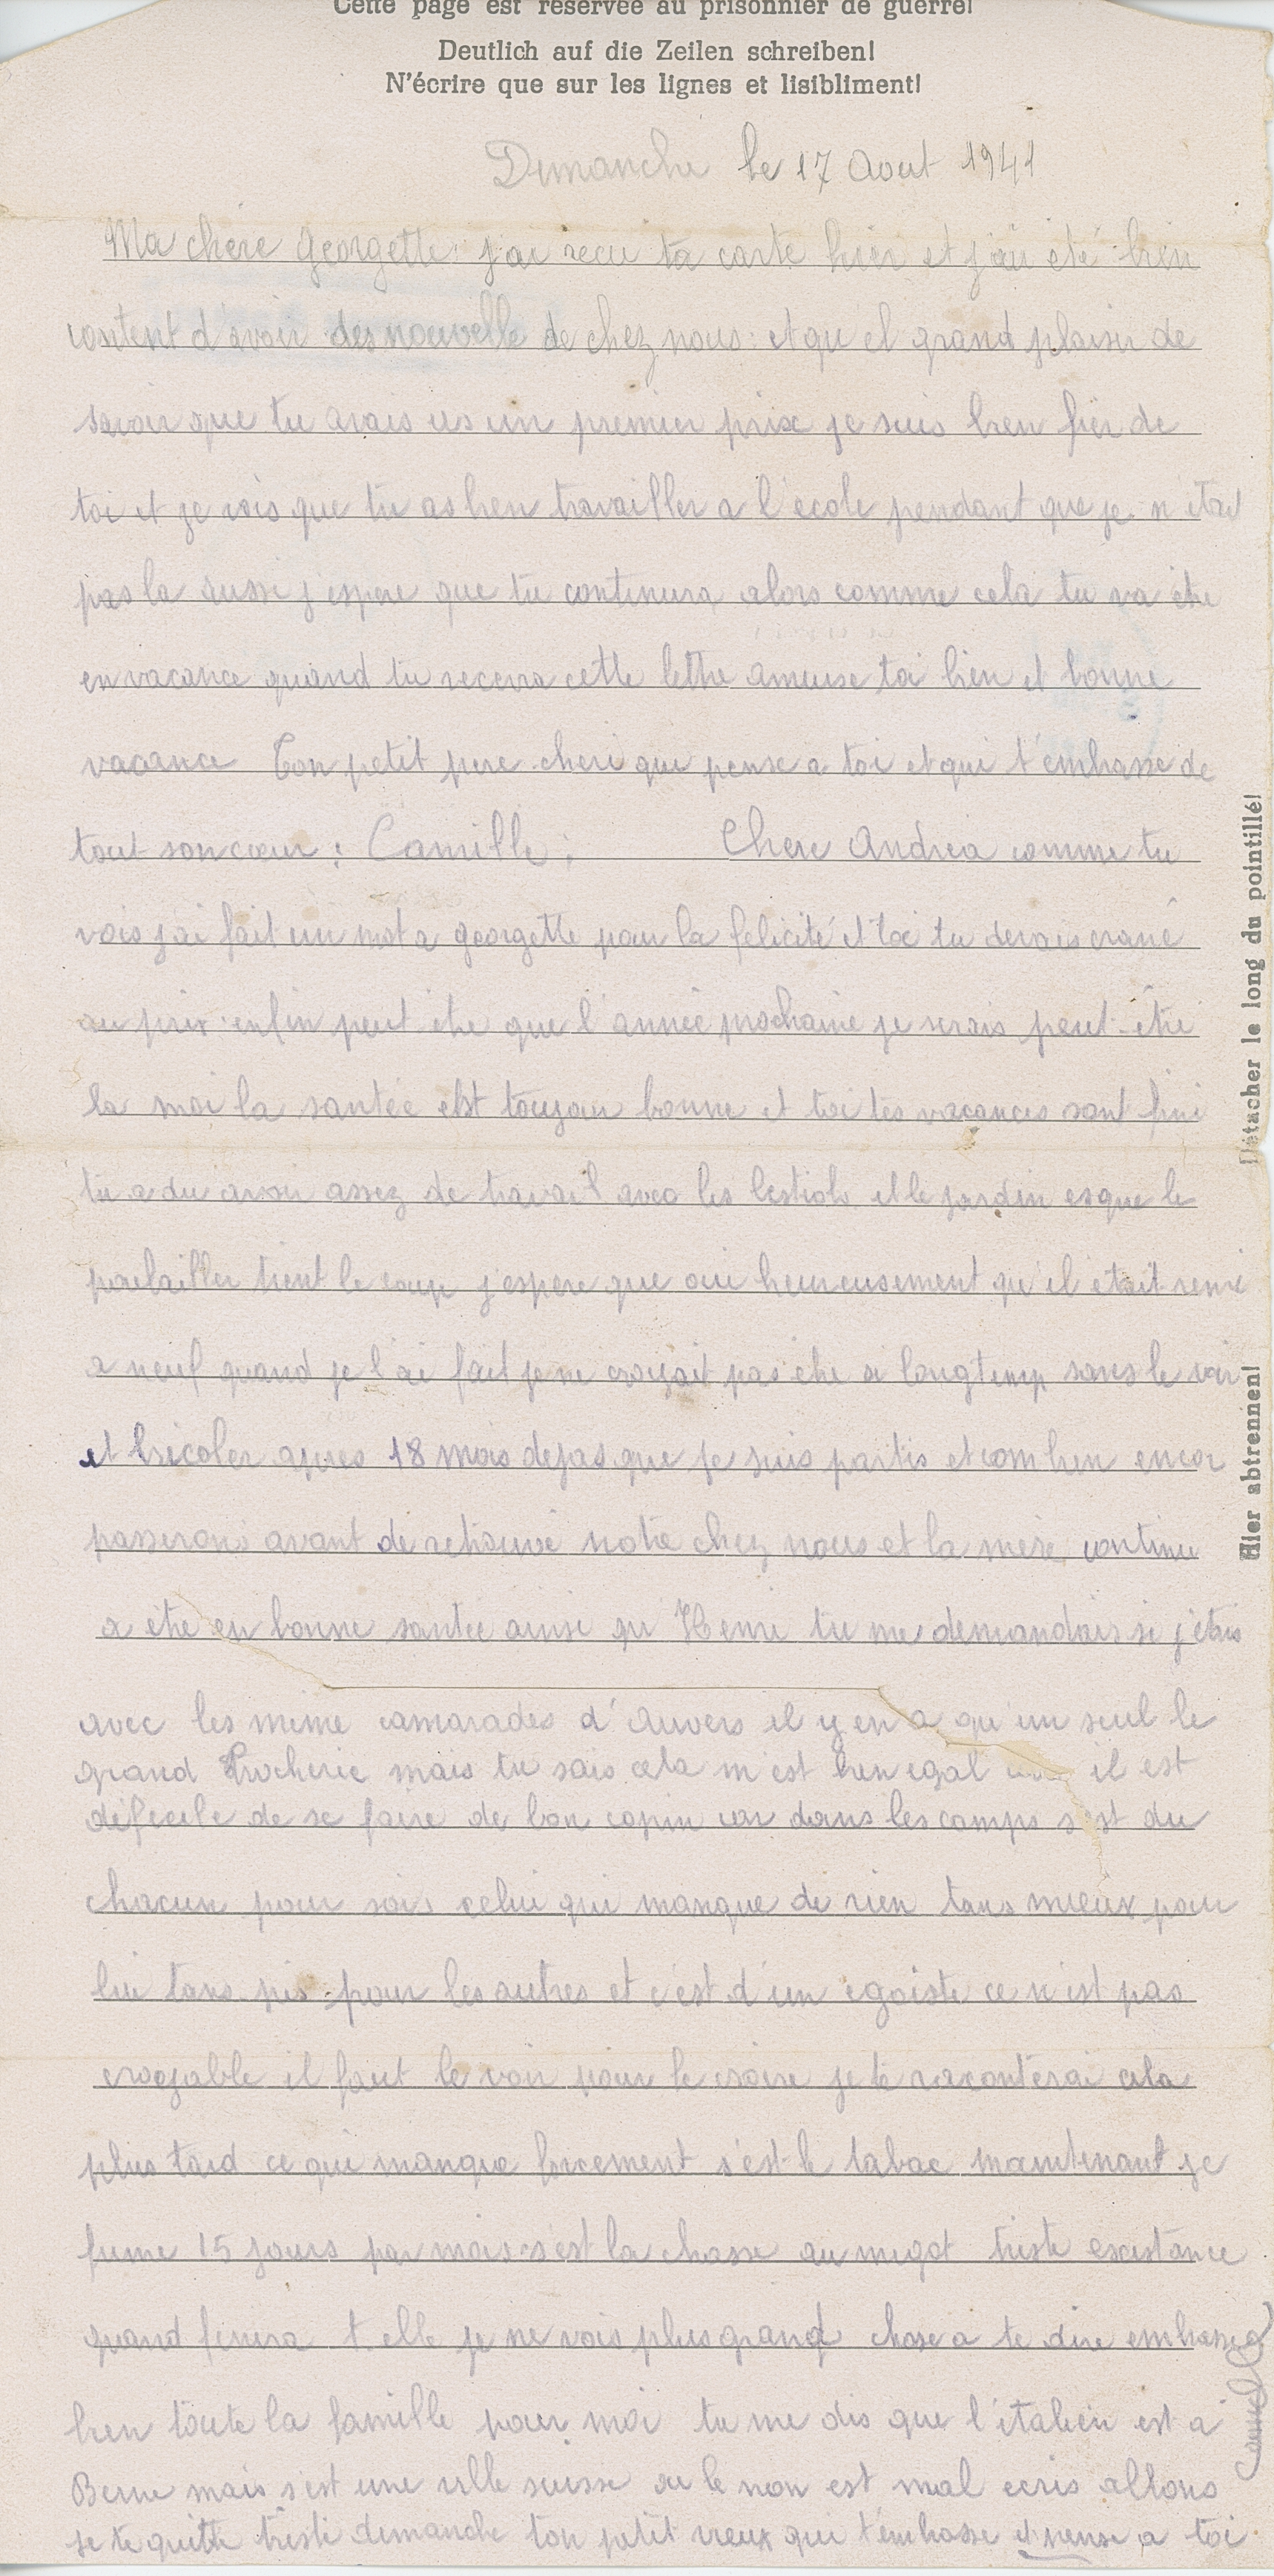 Cette page est réservée au prisonnier de guerre!
Deutlich auf die Zeilen schreiben!
N'écrire que sur les lignes et lisibliment!
Dimanche le 17 Aout 1941
Ma chère Georgette: j'ai recu ta carte hier et j'ai été bien
content d'avoir des nouvelle de chez nous: et qu el grand plaisir de
savoir que tu avais us un premier prix je suis bien fier de
toi et je vois que tu as bien travailler a l'école pendant que je n'étai
pas la aussi j'espere que tu continura alors comme cela tu va être
en vacance quand tu recevra cette lettre amuse toi bien et bonne
vacance Ton petit pere cheri qui pense a toi et qui t'embrasse de
tout son cœur: Camille: Chere Andrea comme tu
vois j'ai fait un mot a Georgette pour la felicité et toi tu devais crané
au prix enfin peut être que l'année prochaine je serais peut-être
la moi la santée est toujour bonne et toi tes vacances sont fini
tu a du avoir assez de travail avec les bestiole et le jardin esque le
poulailler tient le coup j'espere que oui heureusement qu'il était remi
a neuf quand je l'ai fait je ne croyait pas être si longtemp sans le voir
et bricoler apres 18 mois dejas que je suis partis et combien encor
passerons avant de retrouvé notre chez nous et la mère continue
a être en bonne santée ainsi qu'Henri tu me demandais si j'étais
avec les meme camarades d'Auvers il y en a qu'un seul le
grand mais tu sais cela m'est bien egal il est
dificile de se faire de bon copin car dans les camps s'est du
chacun pour soi celui qui manque de rien tans mieux pour
lui tans pis pour les autres et c'est d'un egoiste ce n'est pas
croyable il faut le voir pour le croire je te raconterai cela
plus tard ce qui manque forcement s'est le tabac maintenant je
fume 15 jours par mois s'est la chasse au megot triste existance
quand finira t elle je ne vois plus grand chose a te dire embrasse
bien toute la famille pour moi tu me dis que l'italien est a
Berne mais s'est une ville suisse ou le non est mal ecris allons
je te quitte triste dimanche ton petit vieux qui t'embrasse et pense a toi
Camille
Détacher le long du pointillé!
Hier abtrennen!